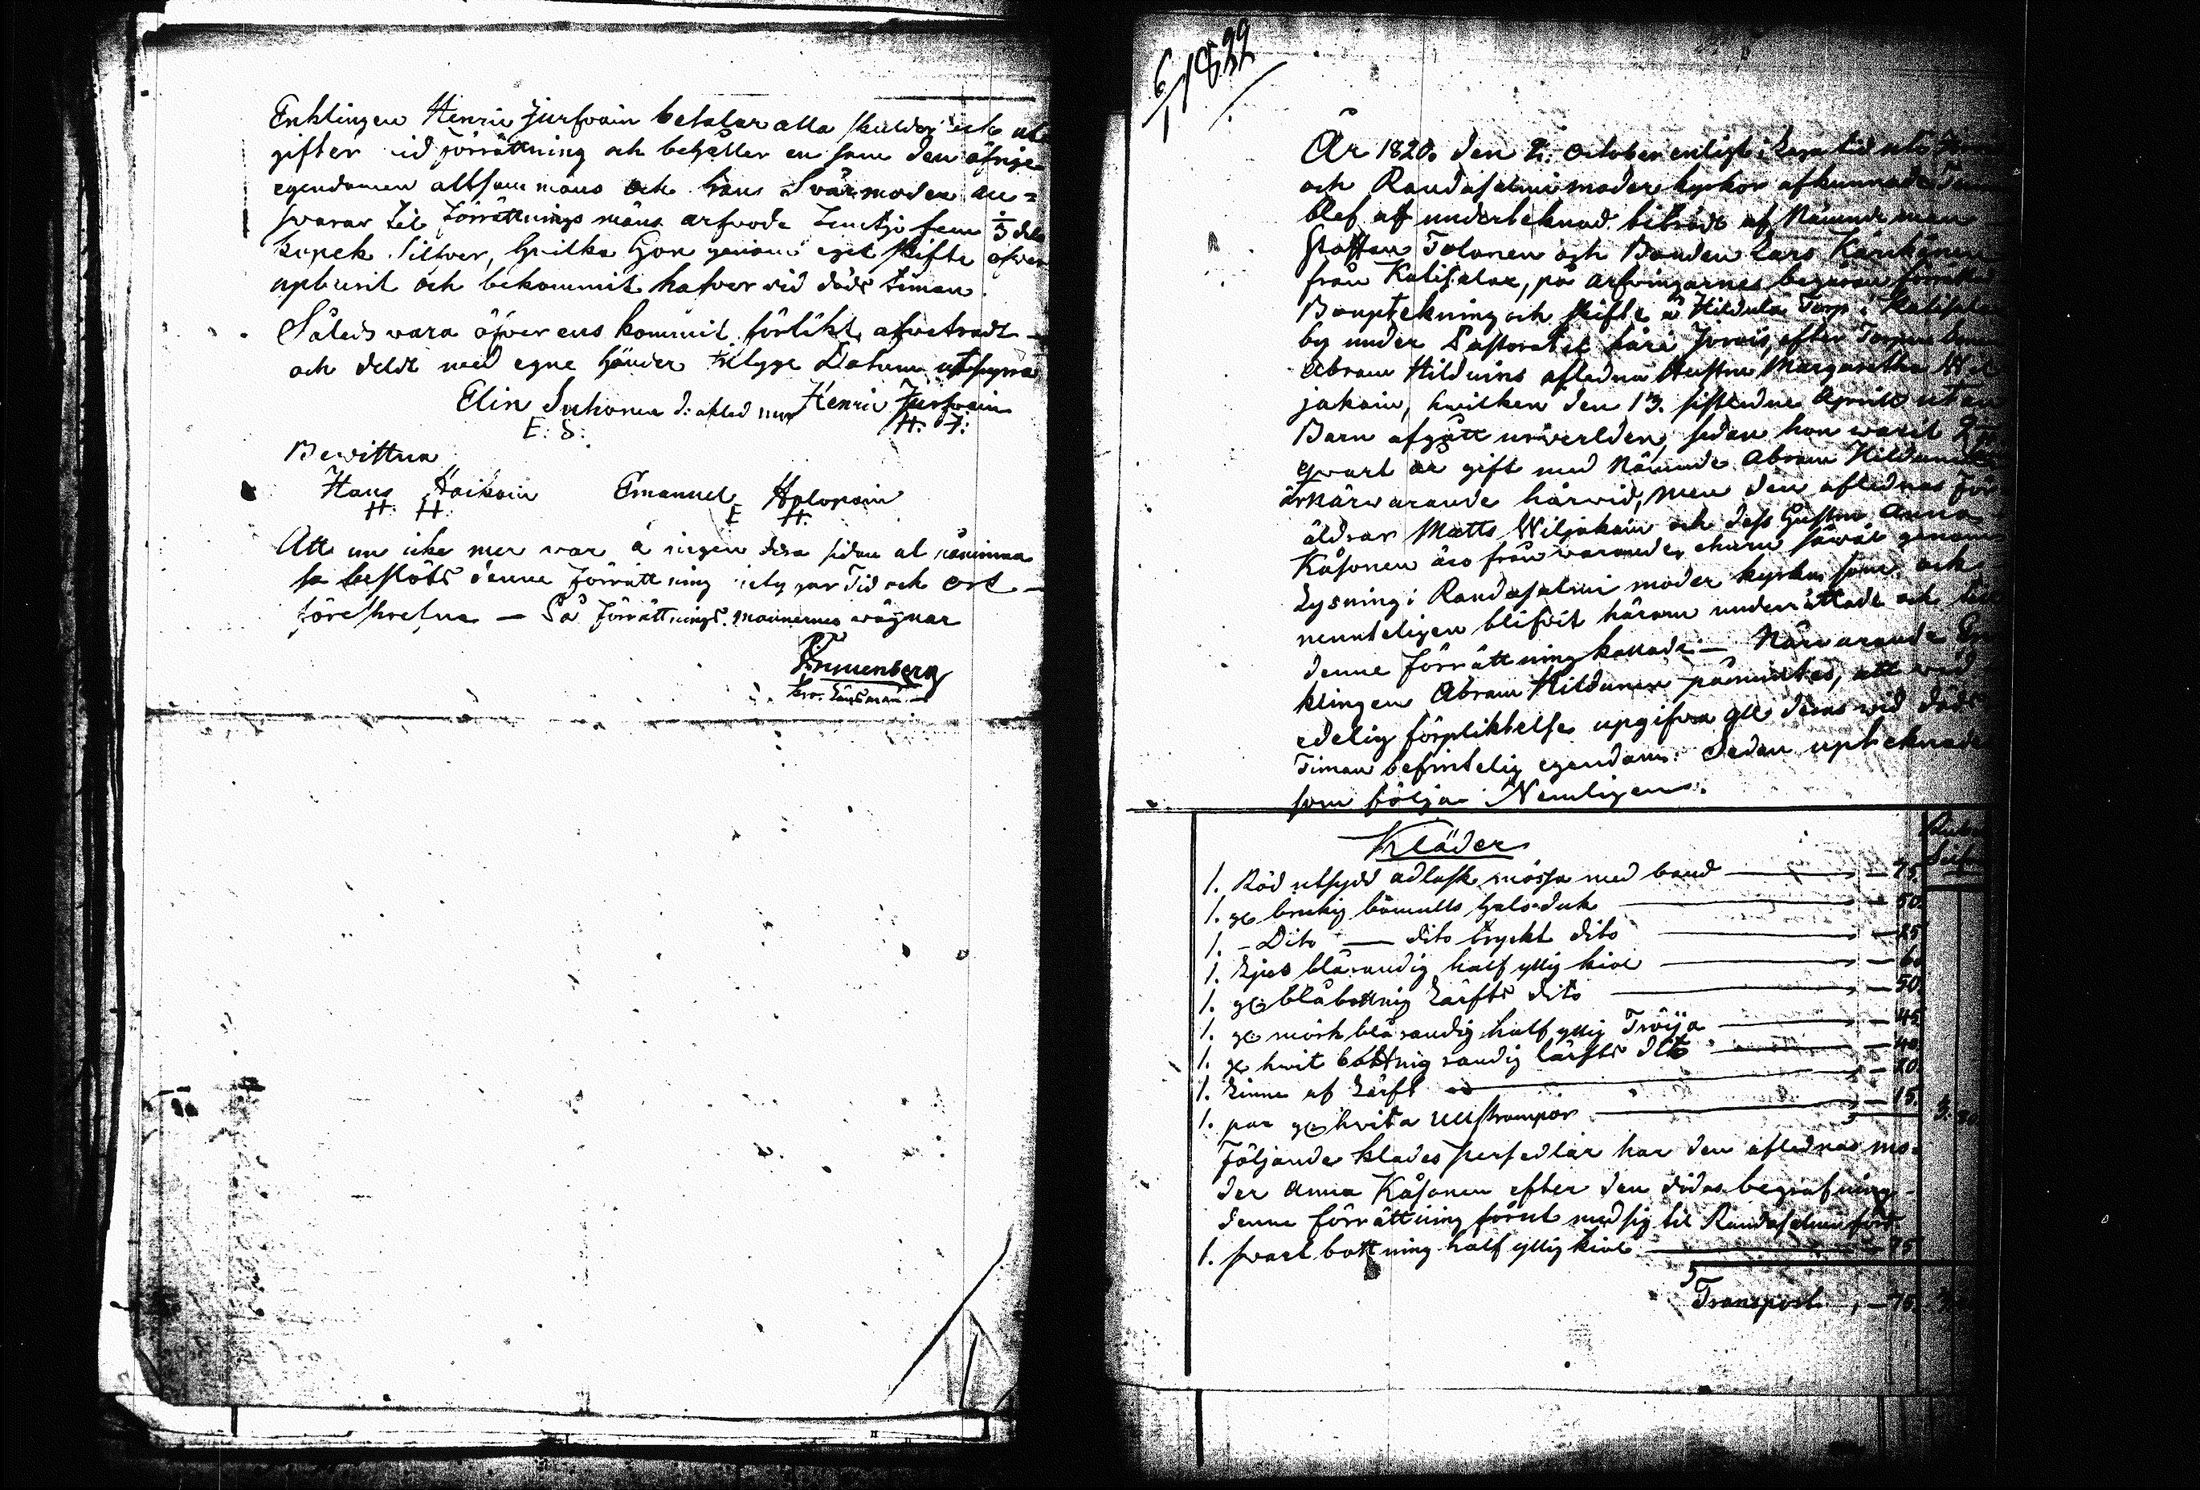 Enklingen Henric Jurfvain betalar alla skulder och ut
gifter vid förrättning och behåller en som den öfrige
egendomen altsammans och hans Svärmoder an=
svarar til förrättnings mäns arfvode Trettjo fem
kopek Silfver, hvilka hon genom eget skifte
upburit och bekommit hafver vid döds timan.
Således vara öfver ens kommit förlikt afvetradt
och deldt med egne händer trygge Datum utsupra
Elin Suhonen d: afled mor Henric Jurfvain
E: S: H: J:
Bewittna
Hans Haikain Emanuel Holopain
H. H. E H.
Att nu icke mer var á ingen dera sidan at påminna
so beslöts denne förrättning intygar Tid och ort
föreskrefna — På förrättnings männernes vägnar
Länsman
6/1 1822
År 1820. den 2. October enligt i laga tid uti
och Randasalmi moder kyrkor afkunnade
blef af undertecknad biträdt af Nämndeman
Staffan Tolonen och Bonden Lars Kärkkänen
från Katisalax, på arfvingarnes begäran
Bouptekning och skifte å Hildula Torp i
by under Pastoratet härå Jorois, efter Torparen
Abram Hilduins afledna Hustru Margaretha Wil
jakain, hvilken den 13. sistledne Aprill utan
Barn afgått ur verlden, sedan hon varit 2
qvart år gift med Nämnde Abram Hildunen
är närvarande härvid, men den aflednas För
äldrar Matts Wiljakain och dess Hustru Anna
Kåsonen äro från varande, ehuru såväl genom
Lysning i Randasalmi moder kyrka som och
nemteligen blifvit härom underrättade och til
denne förrättning kallade — Närvarande En
klingen Abram Hildunen påmintes, att med
edelig förpliktelse upgifva all deras vid döds
Timan befintelig egendom: Sedan upteknades
som följer Nemligen:
Kläder
1. Röd utsydd adlask mössa med band — 75.
1. ge brukig bomulls halsduk — 50.
1. - Dito — dito tryckt dito — 25
1. Ljus blårandig half yllig kiol — 60
1. ge blåbottnig Lärfts dito — 50.
1. ge mörk blårandig half yllig Tröija — 45
1. ge hvit bottnig randig lärfts dito — 40.
1. Linne af Lärft — 20.
1. par ge hvita ullstrumpor — 15.
Följande klädes persedlar har den aflednas mo-
der Anna Kåsonen efter den dödas begrafning
denne förrättning förut med sig til Randasalmi fört
1. svart bottning half yllig kiol — 75
Transport — 75.